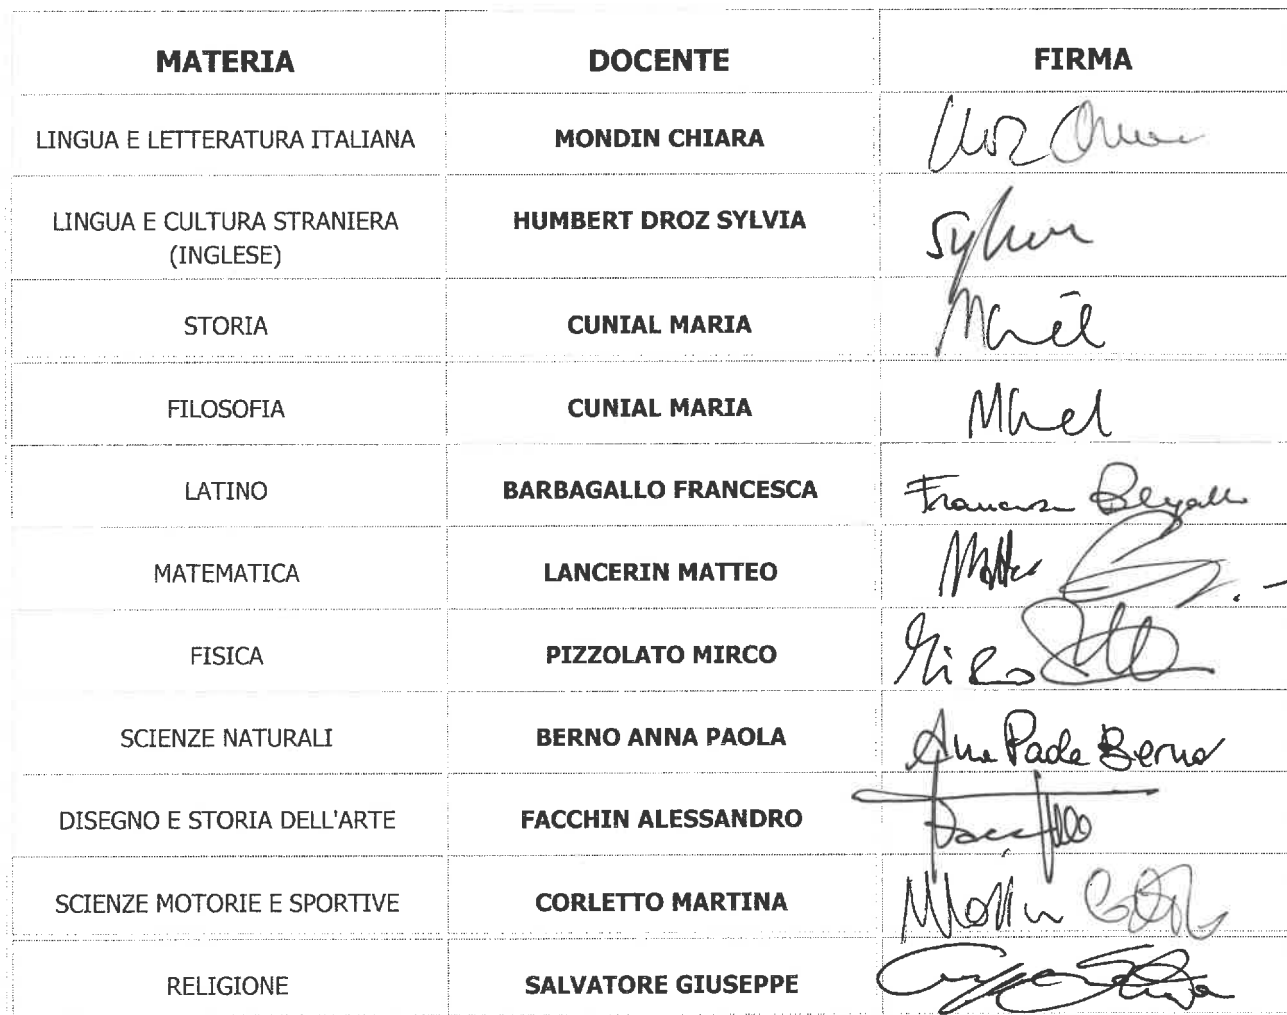 MATERIA DOCENTE FIRMA
LINGUA E LETTERATURA ITALIANA MONDIN CHIARA
LINGUA E CULTURA STRANIERA
(INGLESE) HUMBERT DROZ SYLVIA
STORIA CUNIAL MARIA
FILOSOFIA CUNIAL MARIA
LATINO BARBAGALLO FRANCESCA
MATEMATICA LANCERIN MATTEO
FISICA PIZZOLATO MIRCO
SCIENZE NATURALI BERNO ANNA PAOLA Anna Paola Berno
DISEGNO E STORIA DELL'ARTE FACCHIN ALESSANDRO
SCIENZE MOTORIE E SPORTIVE CORLETTO MARTINA
RELIGIONE SALVATORE GIUSEPPE